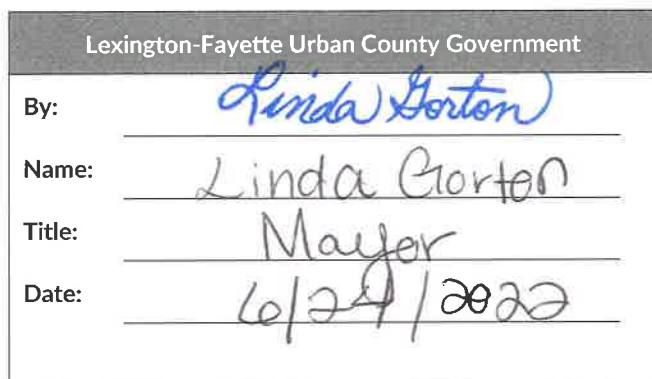 Lexington-Fayette Urban County Government
By: Linda Gorton
Name: Linda Gorton
Title: Mayor
Date: 6/24/2022